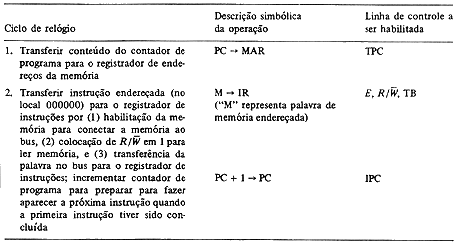 Ciclo de relógio
Descrição simbólica
da operação
Linha de controle a
ser habilitada
1. Transferir conteúdo do contador de
programa para o registrador de ende-
reços da memória
PC → MAR
TPC
2. Transferir instrução endereçada (no
local 000000) para o registrador de
instruções por (1) habilitação da me-
mória para conectar a memória ao
bus, (2) colocação de R/W̅ em 1 para
ler memória, e (3) transferência da
palavra no bus para o registrador de
instruções; incrementar contador de
programa para preparar para fazer
aparecer a próxima instrução quando
a primeira instrução tiver sido con-
cluída
M → IR
(“M” representa palavra de
memória endereçada)
E, R/W̅, TB
PC + 1 → PC
IPC